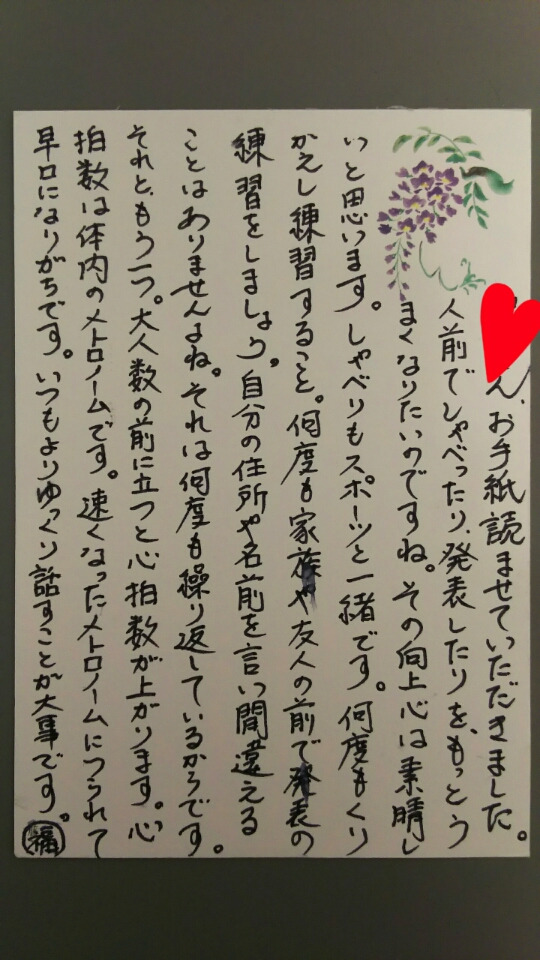 ん、お手紙読ませていただきました。
人前でしゃべったり、発表したりを、もっとう
まくなりたいのですね。その向上心は素晴し
いと思います。しゃべりもスポーツと一緒です。何度もくり
かえし練習すること。何度も家族や友人の前で発表の
練習をしましょう。自分の住所や名前を言い間違える
ことはありませんよね。それは何度も繰り返しているからです。
それと、もう一つ。大人数の前に立つと心拍数が上がります。心
拍数は体内のメトロノームです。速くなったメトロノームにつられて
早口になりがちです。いつもよりゆっくり話すことが大事です。
福